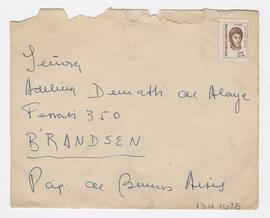 Señora
Adelina Dematti de Alaye
Ferrari 350
BRANDSEN
Pcia. de Buenos Aires
25